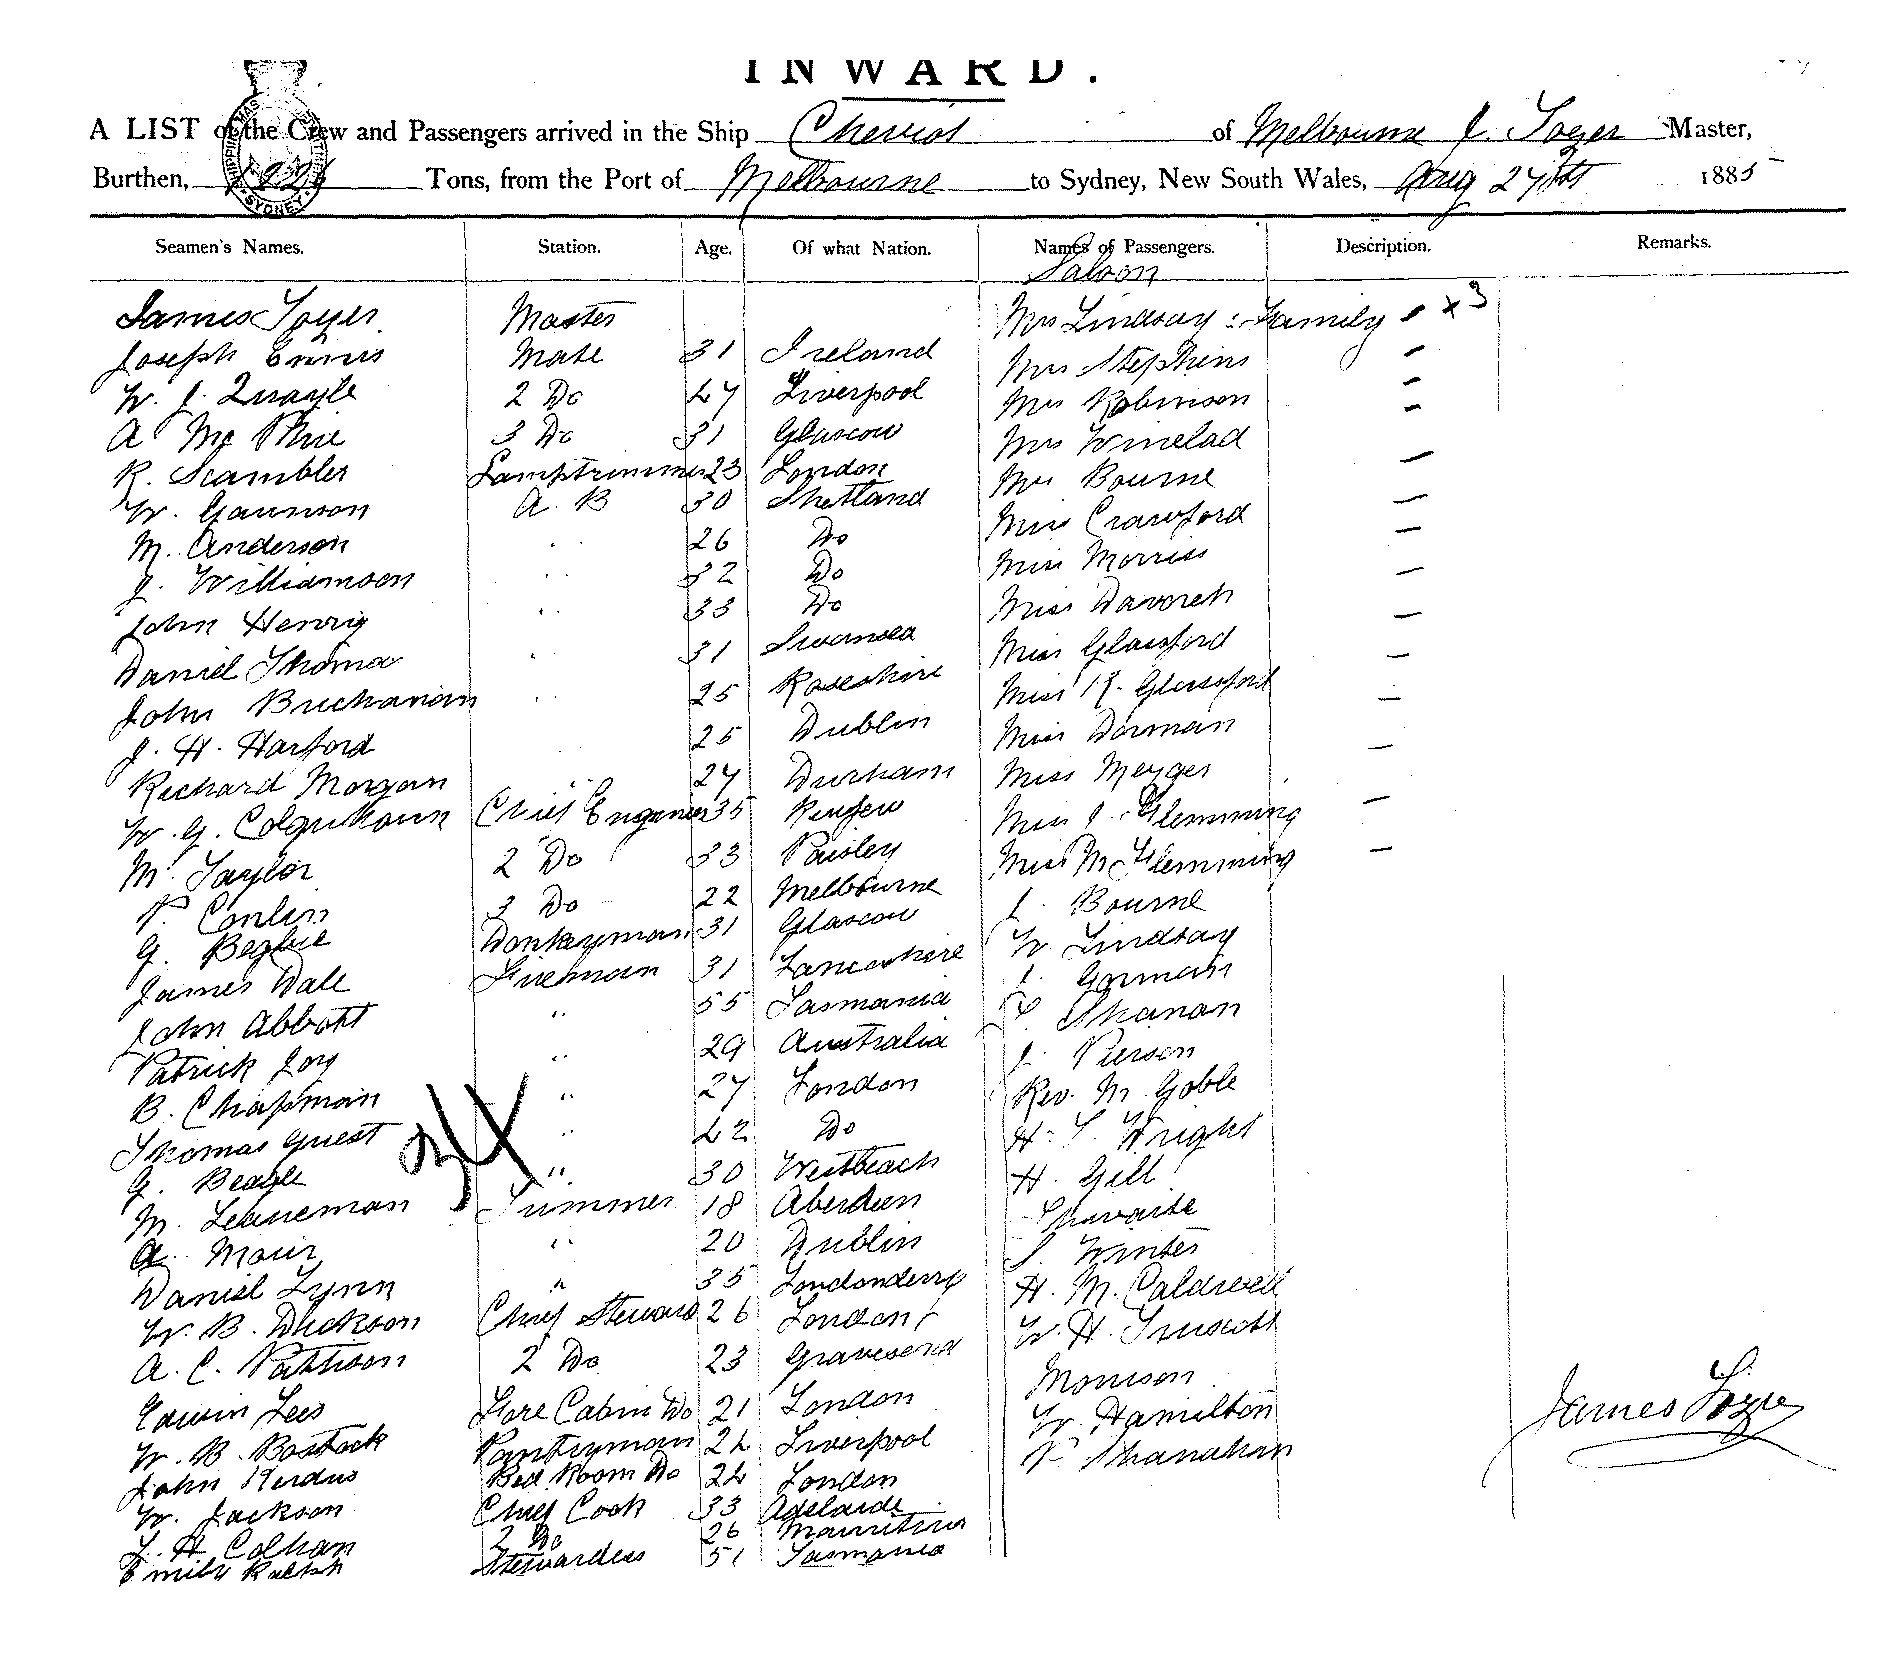 INWARD.
A LIST of the Crew and Passengers arrived in the Ship Cheviot of Melbourne J. Tozer Master,
Burthen, Tons, from the Port of Melbourne to Sydney, New South Wales, Aug 27th 1885
Seamen's Names. Station. Age. Of what Nation. Names of Passengers. Description. Remarks.
Saloon
James Tozer Master Mrs Lindsay & Family x 3
Joseph Ennis Mate 31 Ireland Mrs Stephens
W. J. Quayle 2 Do 47 Liverpool Mrs Robinson
A Mc Phie 3 Do 31 Glascow Mrs Winelad
R. Scambler Lamptrimmer 23 London Mrs Bourne
W. Gaunson A. B 30 Shetland Miss Crawford
M. Anderson " 26 Do Miss Morriss
J. Williamson " 32 Do Miss Davoreh
John Henry " 33 Do Miss Glassford
Daniel Thoma " 31 Swansea Miss K. Glassford
John Buchanan " 25 Roseshire Miss Dorman
J. H. Harford 25 Dublin Miss Meyger
Richard Morgan " 27 Durham Miss J. Flemming
W. G. Colquhoun Chief Engineer 35 Renfew Miss M. Flemming
M. Taylor 2 Do 33 Paisley J. Bourne
P. Conlin 3 Do 22 Melbourne W. Lindsay
G. Beglue Donkeyman 31 Glascow J. Gorman
James Dale Fireman 31 Lancashire Shanan
John Abbott " 55 Tasmania J. Pierson
Patrick Joy " 29 Australia Rev. M. Goble
B. Chapman " 27 London H. T. Wright
Thomas Guest " 42 Do H. Gill
G. Beagle " 30 Westbeach
M. Trimmer 18 Aberdeen Winter
A. Moir " 20 Dublin H. M. Caldwell
Daniel Lynn " 35 Londonderry W. H. Truscott
W. B. Dickson Chief Steward 26 London Morrison
A. C. Pattison 2 Do 23 Gravesend W. Hamilton
Edwin Lees Fore Cabin Do 21 London P. Shanahan
W. B. Bostock Pantryman 24 Liverpool
John Kerdus Bed Room Do 24 London
W. Jackson Chief Cook 33 Adelaide
L. H. Colhan 2 Do 26 Mauritius
Emily Ralph Stewardess 51 Tasmania
James Tozer